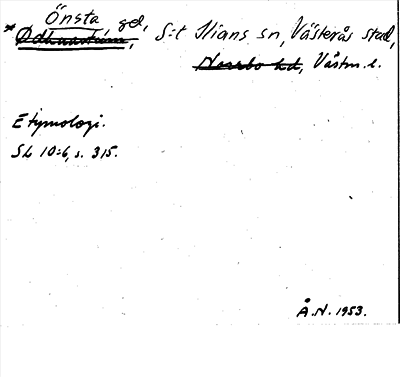 Önsta gd, S:t Ilians sn, Västerås stad,
* Ødhnastum,
Norrbo hd, Västm. l.
Etymologi.
SL 10:6, s. 315.
Å.N. 1953.